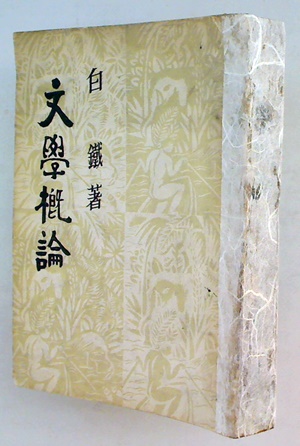 文學槪論
白鐵著